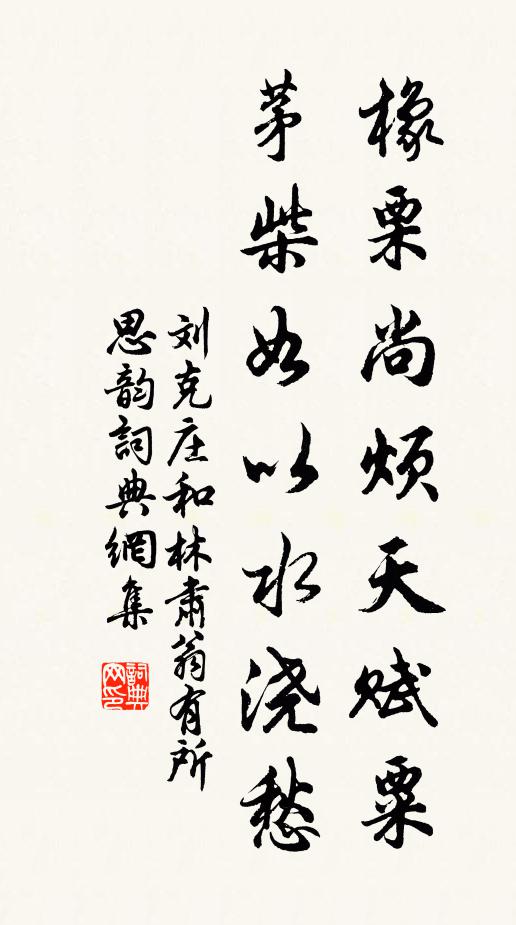 橡栗尚烦天赋粟
茅柴如以水浇愁
刘克庄和林肃翁有所
思韵詞典網集
詞典网印